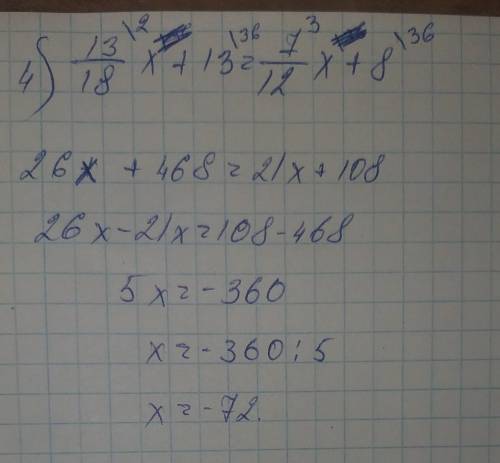 4) 13/18 \2 x + 13 \36 = 7/12 \3 x + 8 \36
26x + 468 = 21x + 108
26x - 21x = 108 - 468
5x = -360
x = -360 : 5
x = -72.